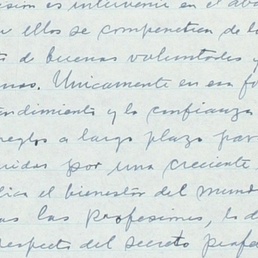 es intervenir en el
ellos se compenetran de l
de buenas voluntades y
Unicamente en esa fo
endimiento y la confianza
reglos a largo plazo par
ridas por una creciente
el bienestar del mund
as las profesiones, lo d
respecto del secreto profe